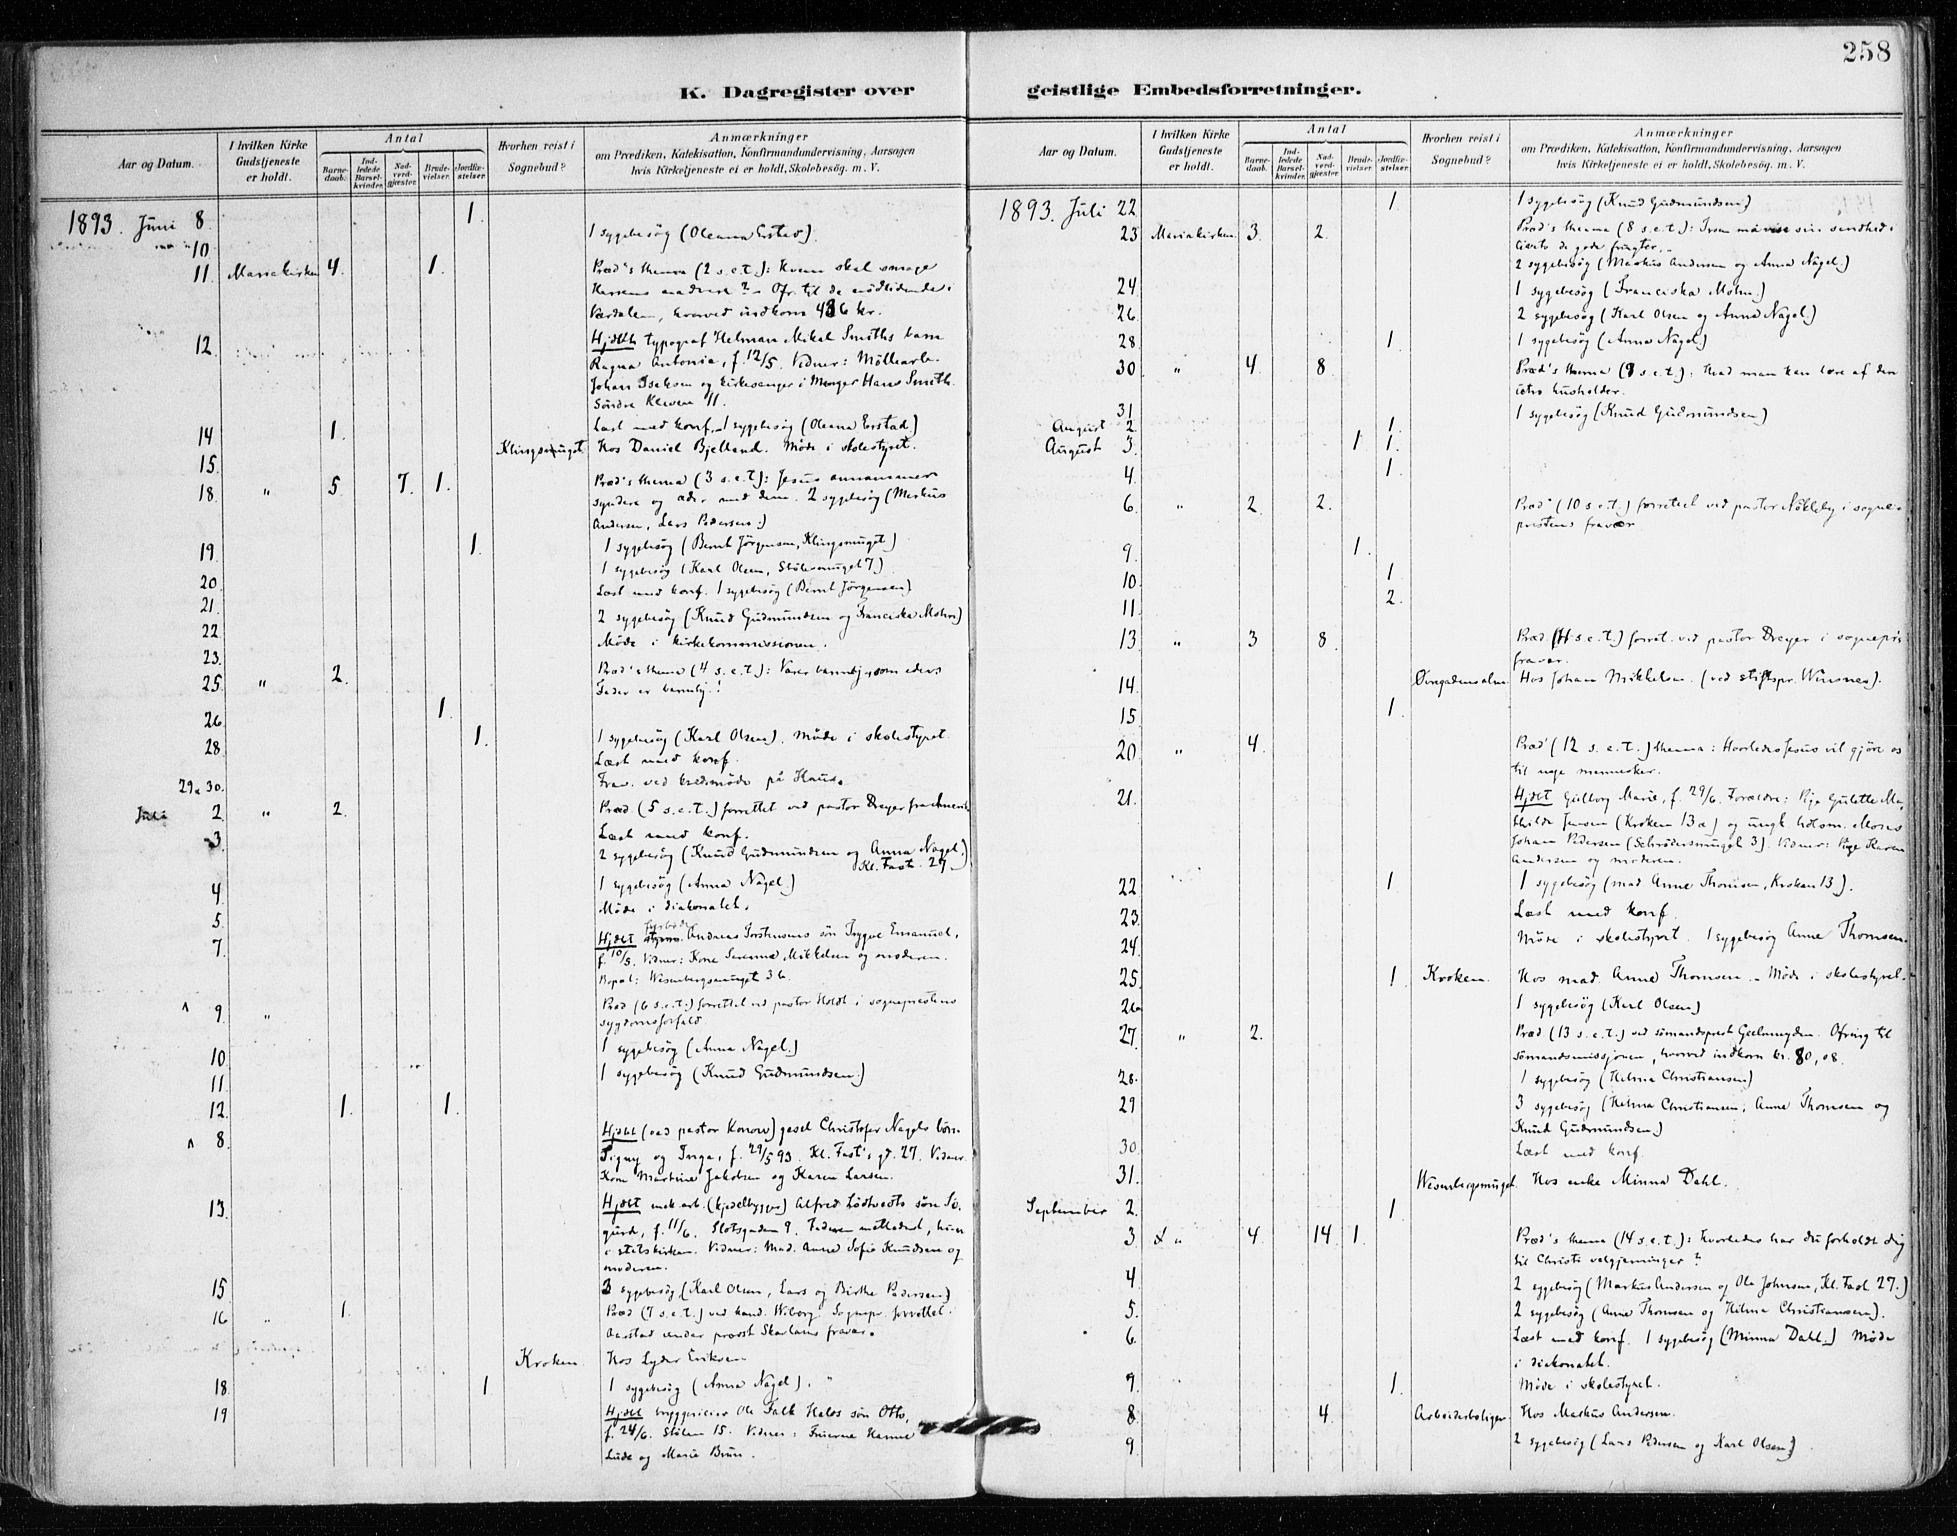 258
K. Dagregister over geistlige Embedsforretninger.
Aar og Datum.
I hvilken Kirke Gudstjeneste er holdt.
Antal
Barnedaab.
Indledede Barselkvinder.
Nadverdgjæster.
Brudevielser.
Jordfæstelser.
Hvorhen reist i Sognebud?
Anmærkninger
om Prædiken, Katekisation, Konfirmandundervisning, Aarsagen
hvis Kirketjeneste ei er holdt, Skolebesøg. m. V.
1893. Juni 8. 1.
10 1 sygebesög (Oleana Erstad).
11 Mariakirken 4. 1. Præd's thema (2 s.e.t.): Hvem skal smage
Herrens nadverd? - Ofr. til de nödlidende i
Værdalen, hvorved indkom 486 kr.
12 Hjdöbt typograf Helman Mikal Smiths barn
Ragna Antonia, f. 12/5. Vidner: Möllearb.
Johan Isaksen og kirkesanger i Manger Hans Smith.
Söndre Kleven 11.
14 1. Læst med konf. - 1 sygebesög (Oleana Erstad)
15. Klingesmuget Hos Daniel Bjelland. Möde i skolestyret.
18. " 5. 7. 1. Præd's thema (3 s.e.t.): Jesus annammer
syndere og æder med dem. 2 sygebesög (Markus
Andersen, Lars Pedersen.)
19. 1. 1 sygebesög (Bernt Jörgensen, Klingesmuget)
20 1 sygebesög (Karl Olsen, Stölesmuget 7)
21. Læst med konf. 1 sygebesög (Bernt Jörgensen)
22 2 sygebesög (Knud Gudmundsen og Franciska Mohn)
23. Möde i kirkekommissionen.
25. " 2. Præd's thema (4 s.e.t.): Værer barmhj. som eders
Fader er barmhj.!
26. 1.
28. 1. 1 sygebesög (Karl Olsen). Möde i skolestyret.
Læst med konf.
29 & 30. Frav. ved kredsmöde på Haus.
Juli 2 " 2. Præd (5 s.e.t.) forrettet ved pastor Dreyer fra Amerik
3 Læst med konf.
2 sygebesög (Knud Gudmundsen og Anna Nagel.)
Kl. Fast. 27
4 1 sygebesög (Anna Nagel.)
5. Möde i diakonatet.
7. Hjdöbt Andreas Torstensens sön Trygve Emanuel,
f. 10/5. Vidner: Kone Serenna Mikkelsen og moderen.
Bopæl: Wesenbergsmuget 3 b.
9. " Præd (6 s.e.t.) forrettet ved pastor Holdt i sogneprestens
sygdomsforfald.
10 1 sygebesög (Anna Nagel.)
11. 1 sygebesög (Knud Gudmundsen.)
12. 1. 1.
8. Hjdöbt (ved pastor Konow) gesel Christofer Nagels börn
Signy og Inga, f. 29/5 93. Kl. Fast's gd. 27. Vidner
Kone Martine Jakobsen og Karen Larsen.
13. Hjdöbt mek. arb. (kjedelbygger) Alfred Lödtvedts sön Si-
gurd, f. 11/6. Slotsgaden 9. Faderen methodist, hun
i statskirken. Vidner: Mad. Anne Sofie Knudsen og
moderen.
15 3 sygebesög (Karl Olsen, Lars og Birthe Pedersen)
16 " 1. Præd (7 s.e.t.) ved kand. Wiborg. Sognepr. forrettet i
Aarstad under provst Skarlands fravær.
Kroken Hos Lyder Eriksen
18. 1 1 sygebesög (Anna Nagel).
19 Hjdöbt byggmester Ole Falk Hales sön Otto,
f. 24/6. Stölen 15. Vidner: Fruerne Hanne
Lude og Marie Brun.
1893. Juli 22 1 1 sygebesög (Knud Gudmundsen)
23 Mariakirken 3. 2. Præd's thema (8 s.e.t.): Troen må vise sin sandhed i
livets de gode frugter.
2 sygebesög (Markus Andersen og Anna Nagel.)
24. 1 sygebesög (Franciska Mohn.)
26. 2 sygebesög (Karl Olsen og Anna Nagel.)
28 1. 1 sygebesög (Anna Nagel)
30 " 4. 8. Præd's thema (9 s.e.t.): Hvad man kan lære af den
utro husholder.
31. 1 sygebesög (Knud Gudmundsen)
August 2. 1.
August 3. 1 1.
4. 1.
6. " 2. 2. Præd' (10 s.e.t.) forrettet ved pastor Nökleby i sogne-
prestens fravær
9. 1.
10. 1
11. 2.
13 " 3 8. Præd (11 s.e.t.) forret. ved pastor Dreyer i sognepr's
fravær.
14. Øvregadensalm. Hos Johan Mikkelsen. (ved stiftspr. Winsnes).
15 1.
20 " 4. Præd' (12 s.e.t.) thema: Hvorledes Jesus vil gjöre os
til nye mennesker.
21. Hjdöbt Gulborg Marie, f. 29/6. Forældre: Pige Gulette Ma-
thilde Jensen (Kroken 13a) og ungk. Mons
Johan Pedersen (Schrödersmuget 3). Vidner: Pige Karen
Andersen og moderen.
22 1 1 sygebesög (mad Anne Thomsen, Kroken 13).
23. Læst med konf.
24. Möde i skolestyret. 1 sygebesög Anne Thomsen.
25 1 Kroken. Hos mad. Anne Thomsen. - Möde i skolestyret.
26 1 sygebesög (Karl Olsen)
27. " 2. Præd (13 s.e.t.) ved sömandsprest Geelmuyden. Ofring til
sömandsmissjonen, hvorved indkom kr. 80,08.
28. 1 sygebesög (Helma Christiansen)
29 3 sygebesög (Helma Christiansen, Anne Thomsen og
Knud Gudmundsen)
30. Læst med konf.
31. Wesenbergsmuget. Hos enke Minna Dahl.
September 2. 1.
3. " 4. 14 1. Præd's thema (14 s.e.t.): Hvorledes har du forholdt dig
til Christi velgjerninger?
4 2 sygebesög (Markus Andersen og Ole Johnsen, Kl. Fast 27.)
5. 2 sygebesög (Anne Thomsen og Helma Christiansen).
6. Læst med konf. 1 sygebesög (Minna Dahl.) Möde
i diakonatet.
7. 1. Möde i skolestyret.
8. 4. Arbeiderboliger Hos Markus Andersen.
9. 2 sygebesög (Lars Pedersen og Karl Olsen)